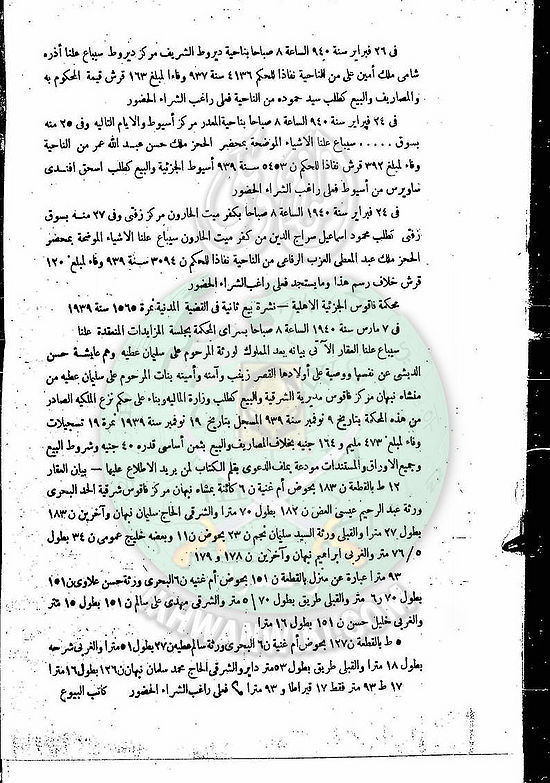 فى ٢٦ فبراير سنة ٩٤٠ الساعة ٨ صباحا بناحية ديروط الشريف مركز ديروط سيباع علنا أذره
شامى ملك أمين على من الناحية نفاذا للحكم ٤١٣٦ سنة ٩٣٧ وفاءا لمبلغ ١٦٣ قرش قيمة المحكوم به
والمصاريف والبيع كطلب سيد حموده من الناحية فعلى راغب الشراء الحضور
فى ٢٤ فبراير سنة ٩٤٠ الساعة ٨ صباحا بناحية المعدر مركز أسيوط والايام التاليه وفى ٢٥ منه
بسوق . . . . . سيباع علنا الاشياء الموضحة بمحضر الحجز ملك حسن عبد الله عمر من الناحية
وفاء لمبلغ ٣٩٢ قرش نفاذا للحكم ن ٥٤٥٣ سنة ٩٣٩ أسيوط الجزئية والبيع كطلب اسحق افندى
ساويرس من أسيوط فعلى راغب الشراء الحضور
فى ٢٤ فبراير سنة ١٩٤٠ الساعة ٨ صباحا بكفر ميت الحارون مركز زفتى وفى ٢٧ منه بسوق
زفتى كطلب محمود اسماعيل سراج الدين من كفر ميت الحارون سيباع علنا الاشياء الموضحة بمحضر
الحجز ملك عبد المعطى العزب الرفاعى من الناحية نفاذا للحكم ن ٣٠٩٤ سنة ٩٣٩ وفاء لمبلغ ١٢٠
قرش خلاف رسم هذا وما يستجد فعلى راغب الشراء الحضور
محكمة فاقوس الجزئية الاهلية — نشرة بيع ثانية فى القضية المدنية نمرة ١٥٦٥ سنة ١٩٣٩
فى ٧ مارس سنة ١٩٤٠ الساعة ٨ صباحا بسراى المحكمة بجلسة المزايدات المنعقدة علنا
سيباع علنا العقار الآتى بيانه بعد المملوك لورثة المرحوم على سليمان عطيه وهم عايشة حسن
الديشى عن نفسها ووصية على أولادها القصر زينب وآمنه وأمينه بنات المرحوم على سليمان عطيه من
منشاه نبهان مركز فاقوس مديرية الشرقية والبيع كطلب وزارة الماليه وبناء على حكم نزع الملكيه الصادر
من هذه المحكمة بتاريخ ٩ نوفمبر سنة ٩٣٩ المسجل بتاريخ ١٩ نوفمبر سنة ١٩٣٩ نمرة ١٩ تسجيلات
وفاء لمبلغ ٤٧٣ مليم و ١٦٤ جنيه بخلاف المصاريف والبيع بثمن أساسى قدره ٤٠ جنيه وشروط البيع
وجميع الاوراق والمستندات مودعة بملف الدعوى بقلم الكتاب لمن يريد الاطلاع عليها — بيان العقار
١٢ ط بالقطعة ن ١٨٣ بحوض أم غنية ن ٦ كائنة بمنشاه نبهان مركز فاقوس شرقية الحد البحرى
ورثة عبد الرحيم عيسى العض ن ١٨٢ بطول ٧٠ مترا والشرقى الحاج سليمان نبهان وآخرين ن ١٨٣
بطول ٢٧ مترا والقبلى ورثة السيد سليمان نجم ن ٢٣ بحوض ن ١١ وبعضه خليج عمومى ن ٣٤ بطول
٥/ ٧٦ متر والغربى ابراهيم نبهان وآخرين ن ١٧٨ و ١٧٩
٩٣ مترا عبارة عن منزل بالقطعة ن ١٥١ بحوض أم غنيه ن ٦ البحرى ورثة حسن علاوى ن ١٥١
بطول ٧٠ر٦ متر والقبلى طريق بطول ٧٠/٥ متر والشرقى مهدى على سالم ن ١٥١ بطول ١٥ متر
والغربى خليل حسن ن ١٥١ بطول ١٦ مترا
٥ ط بالقطعة ن ١٢٧ بحوض أم غنية ن ٦ البحرى ورثة سالم عطيه ن ٢٧ بطول ٥١ مترا والغربى شرحه
بطول ١٨ مترا والقبلى طريق بطول ٥٣ متر داير والشرقى الحاج محمد سلمان نبهان ن ١٢٦ بطول ١٦ مترا
١٧ ط ٩٣ متر فقط ١٧ قيراطا و ٩٣ مترا فعلى راغب الشراء الحضور كاتب البيوع
IKHWANWIKI.COM